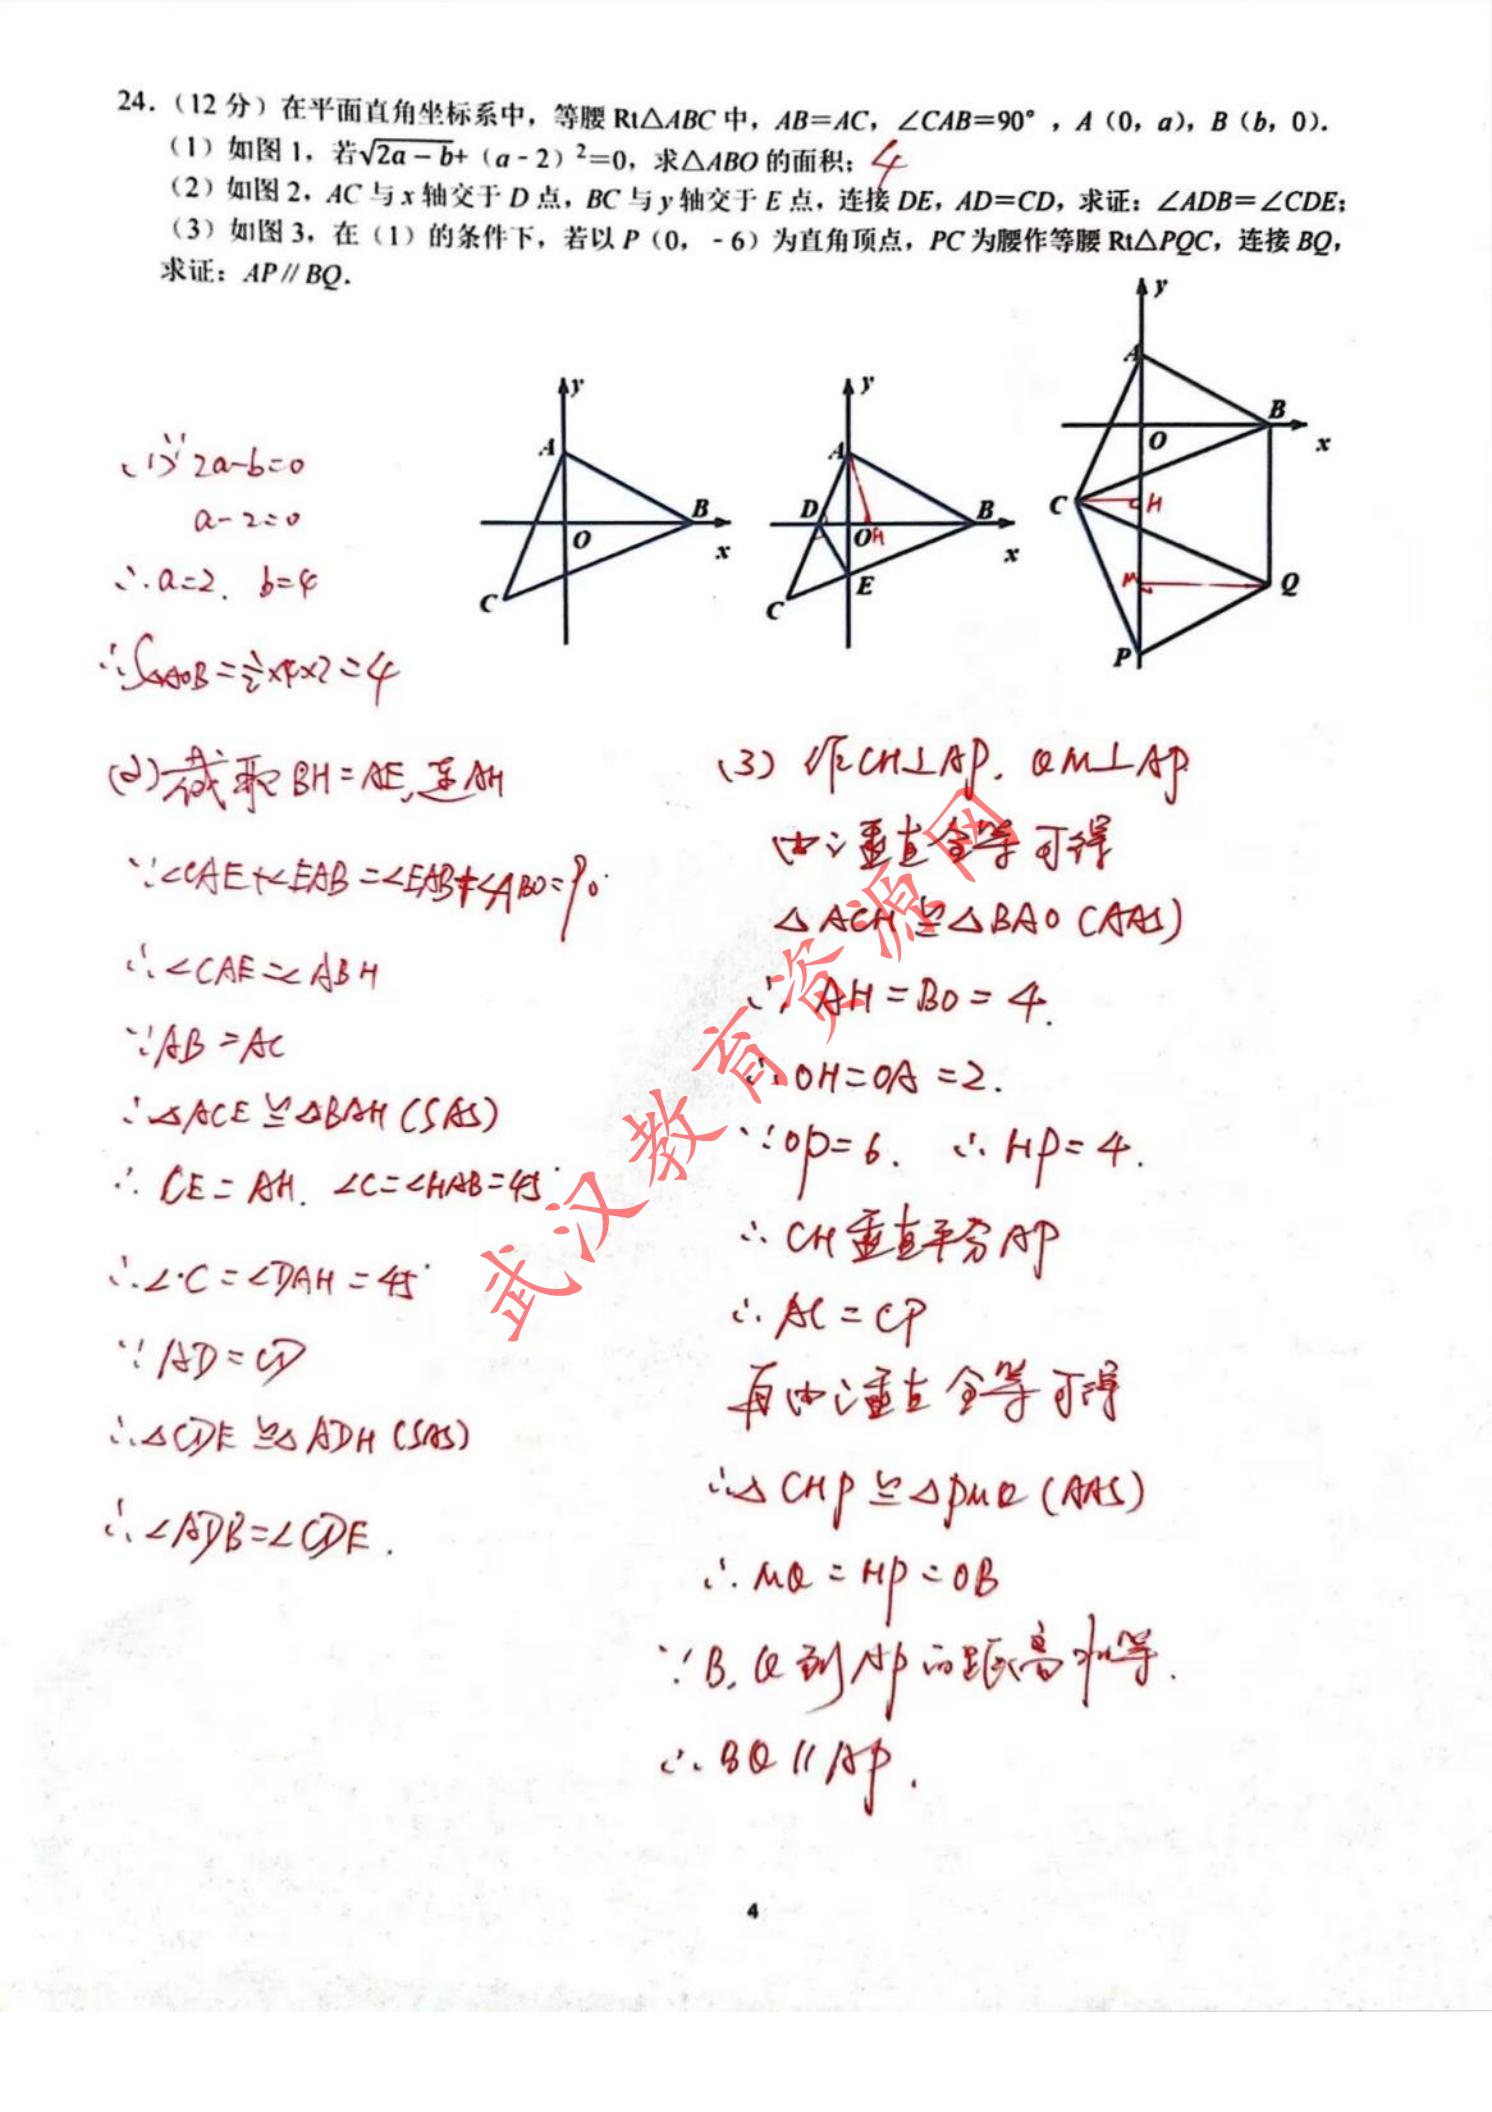 24.（12分）在平面直角坐标系中，等腰 Rt△ABC 中，AB＝AC，∠CAB＝90°，A（0，a），B（b，0）.
（1）如图 1，若√2a－b+（a - 2）²=0，求△ABO 的面积；4
（2）如图 2，AC 与 x 轴交于 D 点，BC 与 y 轴交于 E 点，连接 DE，AD＝CD，求证：∠ADB＝∠CDE；
（3）如图 3，在（1）的条件下，若以 P（0，- 6）为直角顶点，PC 为腰作等腰 Rt△PQC，连接 BQ，
求证：AP∥BQ.
y
A
B
O
x
C
y
A
D
B
O
H
x
E
C
y
A
B
O
x
C
H
M
Q
P
(1)∵2a-b=0
a-2=0
∴a=2. b=4
∴S△AOB=½×4×2=4
(2)截取BH=AE,连AH
∵∠CAE+∠EAB=∠EAB+∠ABO=90°
∴∠CAE=∠ABH
∵AB=AC
∴△ACE≌△BAH(SAS)
∴CE=AH. ∠C=∠HAB=45°
∴∠C=∠DAH=45°
∵AD=CD
∴△CDE≌△ADH(SAS)
∴∠ADB=∠CDE.
(3) 作CH⊥AP. QM⊥AP
由三垂直全等可得
△ACH≌△BAO(AAS)
∴AH=BO=4.
∴OH=OA=2.
∵OP=6. ∴HP=4.
∴CH垂直平分AP
∴AC=CP
再由三垂直全等可得
∴△CHP≌△PMQ(AAS)
∴MQ=HP=OB
∵B,Q到AP的距离相等.
∴BQ∥AP.
武汉教育资源网
4